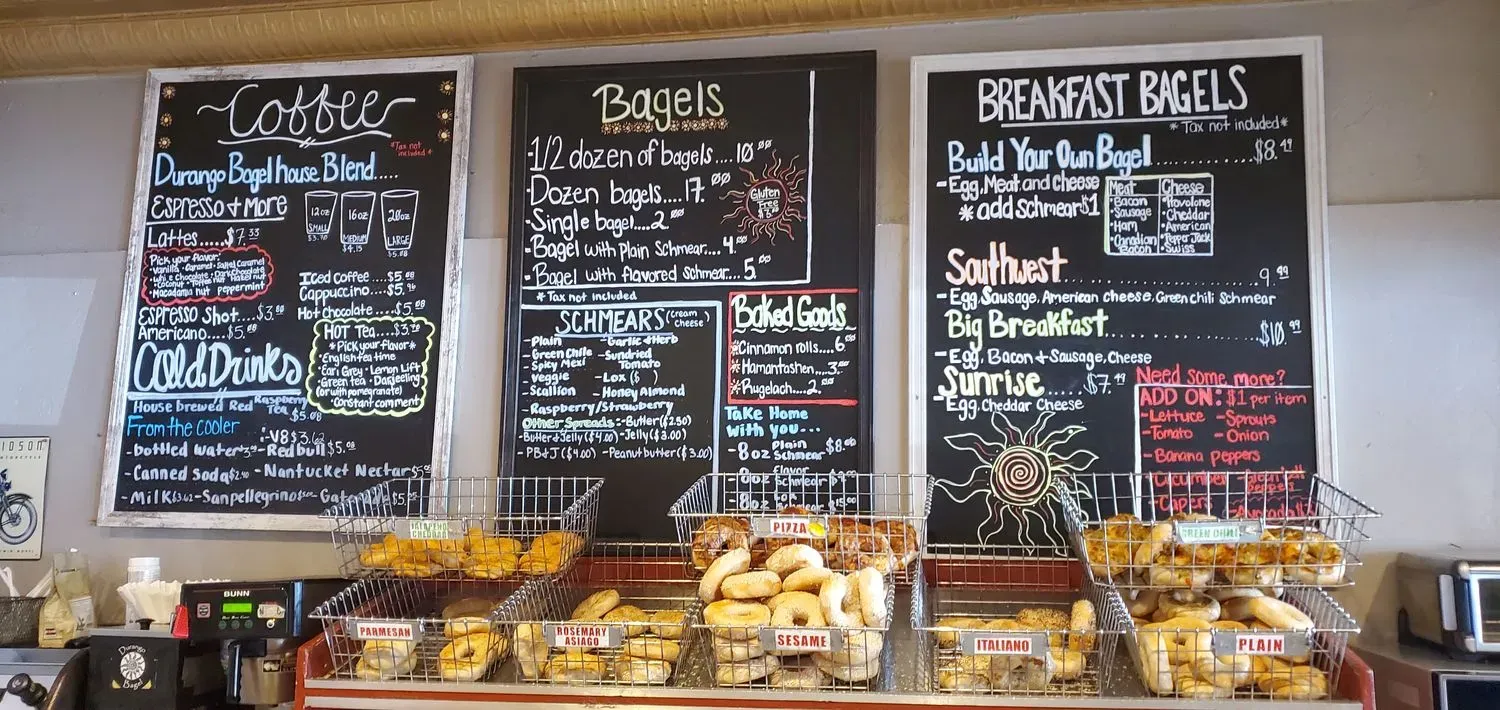 Coffee
*Tax not
included*
Durango Bagel house Blend.....
Espresso + More
12oz
SMALL
$3.70
16oz
MEDIUM
$4.15
20oz
LARGE
Lattes.....$7.33
Pick your flavor:
Vanilla · Caramel · Salted Caramel
White Chocolate · Dark Chocolate
Coconut · Toffee nut · Hazel nut
Macadamia nut peppermint
Espresso Shot....$3.
Americano....$5.08
Iced coffee....$5.08
Cappuccino....$5.
Hot Chocolate..$5.08
HOT Tea....$3.
*Pick your flavor*
English tea time
Earl Grey · Lemon Lift
Green tea · Darjeeling
(or with pomegranate)
Constant comment
Cold Drinks
House brewed Red Raspberry
Tea $5.08
From the cooler
-V8 $3.
-bottled water -Red bull $5.08
-Canned Soda -Nantucket Nectar
-Milk $3.62 -Sanpellegrino
Bagels
·1/2 dozen of bagels....10.00
·Dozen bagels....17.00
·Single bagel....2.00
·Bagel with Plain Schmear....4.00
·Bagel with flavored schmear....5.00
Gluten
Free
*Tax not included
SCHMEARS (cream
cheese)
-Plain -Garlic+Herb
-Green Chile -Sundried
Tomato
-Spicy Mexi
-Veggie -Lox ($ )
-Scallion -Honey Almond
-Raspberry/Strawberry
Other Spreads:-Butter($2.50)
-Butter+Jelly($4.00) -Jelly($3.00)
-PB+J($4.00) -Peanut butter($3.00)
Baked Goods
*Cinnamon rolls....6.
*Hamantashen....3.
*Rugelach....2.
Take Home
With you...
-8oz Plain
Schmear $8.00
8oz flavor
Schmear
-8oz
BREAKFAST BAGELS
*Tax not included*
Build Your Own Bagel..............$8.49
-Egg, Meat, and cheese
*add schmear $1
Meat Cheese
·Bacon ·Provolone
·Sausage ·Cheddar
·Ham ·American
·Canadian
Bacon ·Pepper Jack
·Swiss
Southwest..............9.49
-Egg, Sausage, American cheese, Green chili schmear
Big Breakfast..............$10.99
-Egg, Bacon + Sausage, Cheese
Sunrise..........$7.49
-Egg, Cheddar Cheese
Need some more?
ADD ON: $1 per item
-Lettuce -Sprouts
-Tomato -Onion
-Banana peppers
-Cucumber
-Capers -Avocado
JALAPENO
CHEDDAR
PIZZA
GREEN CHILI
PARMESAN
ROSEMARY
ASIAGO
SESAME
ITALIANO
PLAIN
BUNN
Durango
Bagel